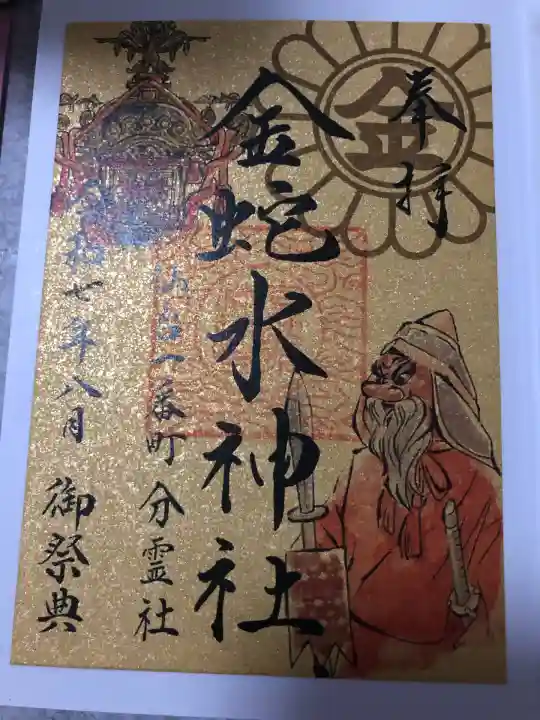 奉拝
金
金蛇水神社
仙台一番町分霊社
令和七年八月 御祭典